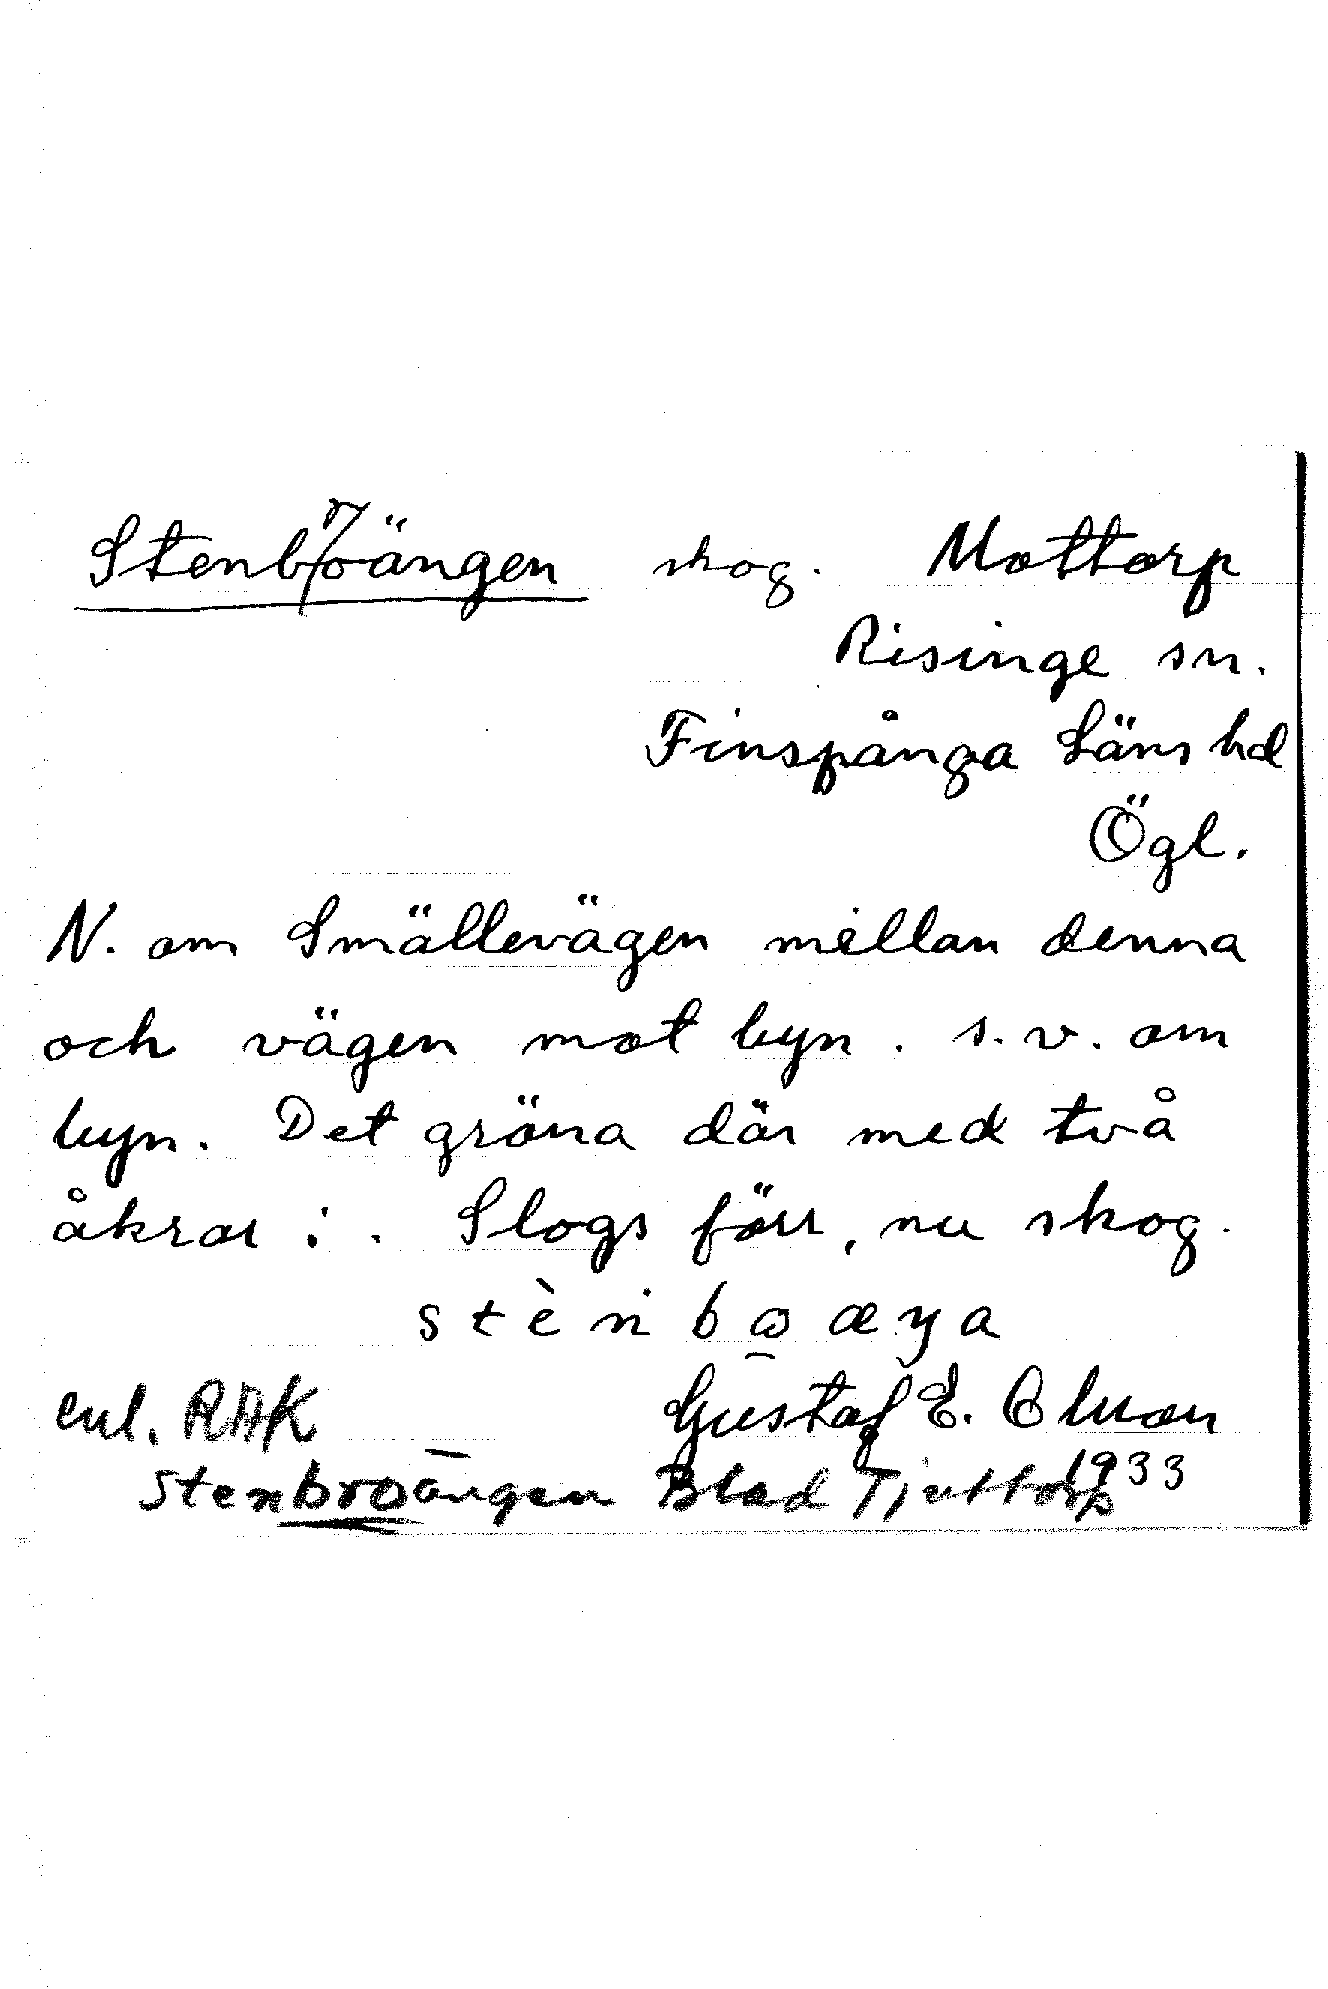 Stenbroängen skog. Mottorp
Risinge sn.
Finspånga Läns hd
Ögl.
N. om Smällevägen mellan denna
och vägen mot byn. s.v. om
byn. Det gröna där med två
åkrar i. Slogs förr, nu skog.
enl. RAK Gustaf E. Olsson
1933
Stenbroängen Blad Tjuttorp